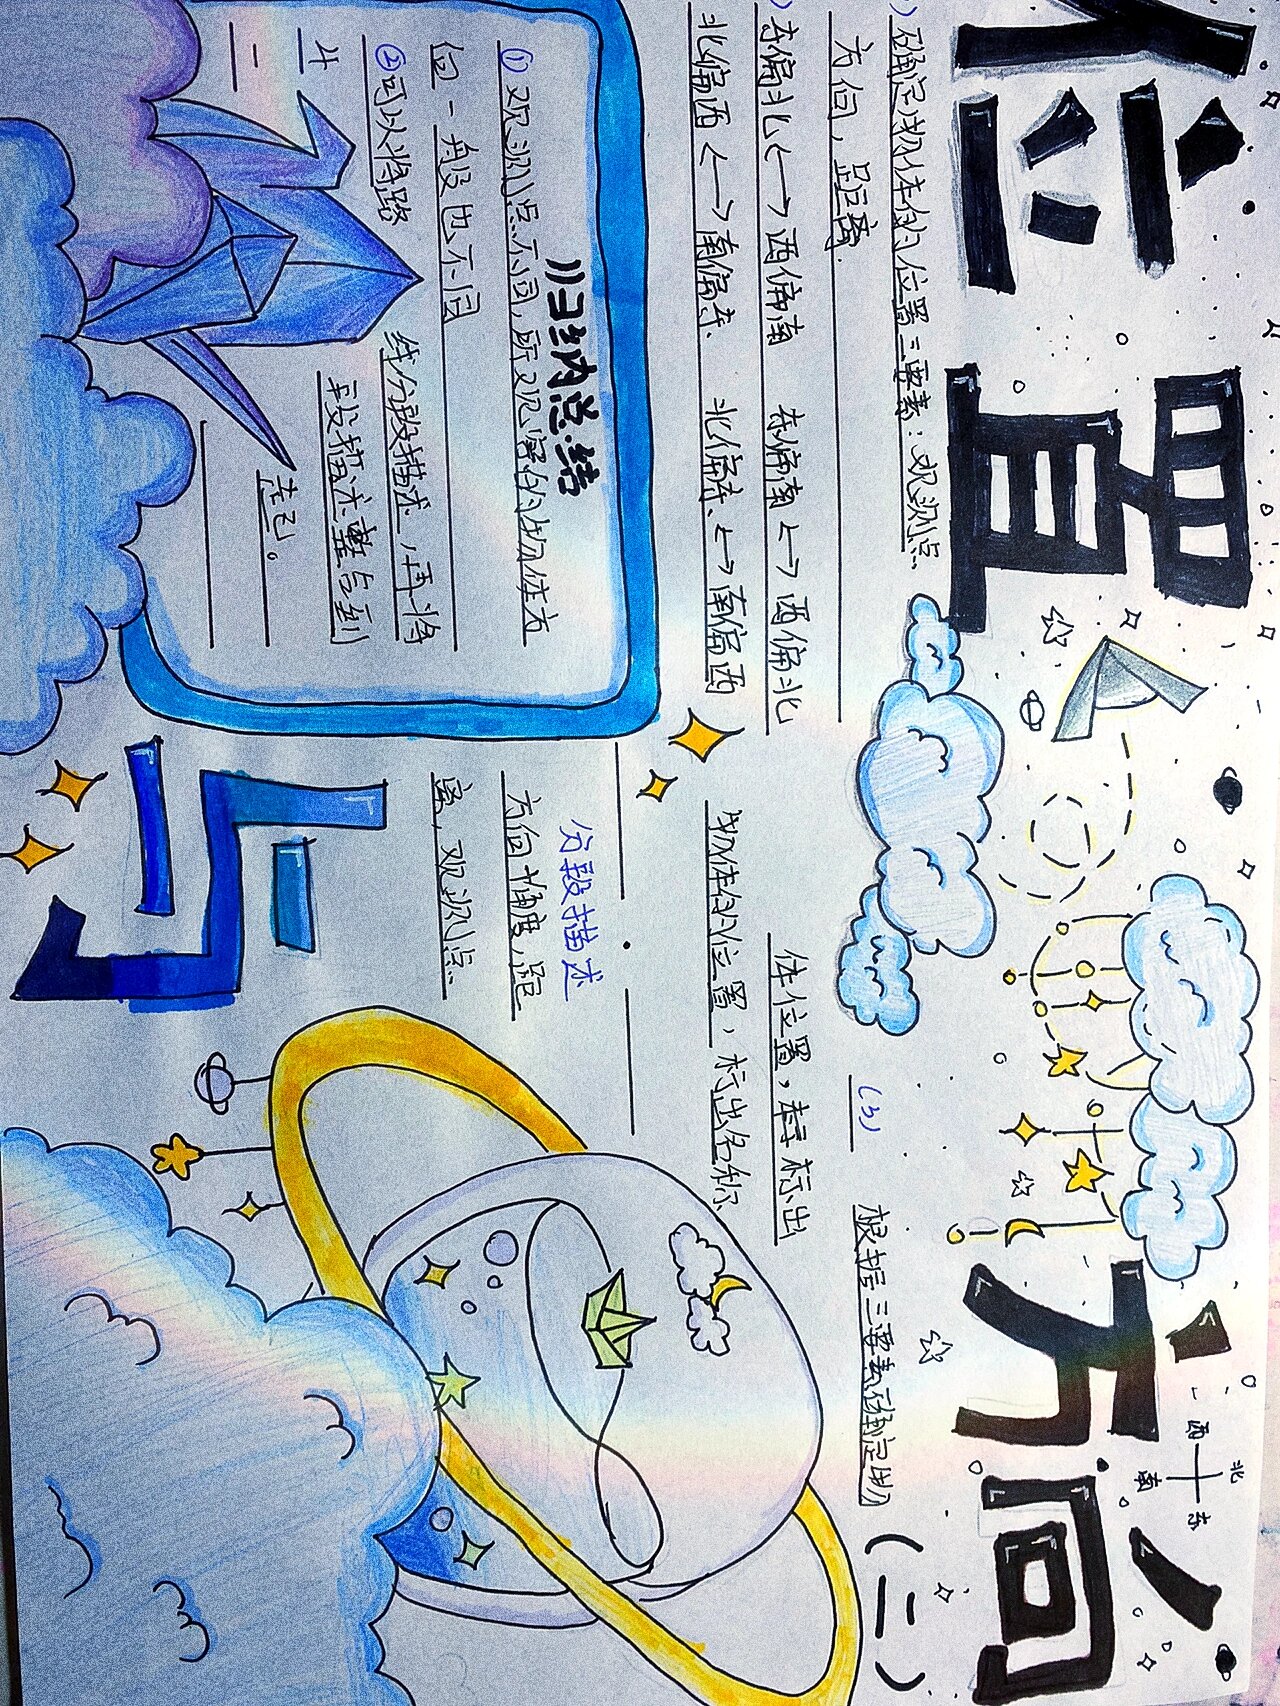 位置与方向(二)
北
西 东
南
1)确定物体的位置三要素:观测点
方向,距离.
东偏北←→西偏南 东偏南←→西偏北
北偏西←→南偏东. 北偏东.←→南偏西
(3) 根据三要素确定物
体位置,标出
物体的位置,标出名称
归纳总结
(1)观测点不同,所观察的物体方
向一般也不同
②可以将路
线分段描述,再将
段描述整合到
起。
分段描述
方向角度,距
离,观测点.